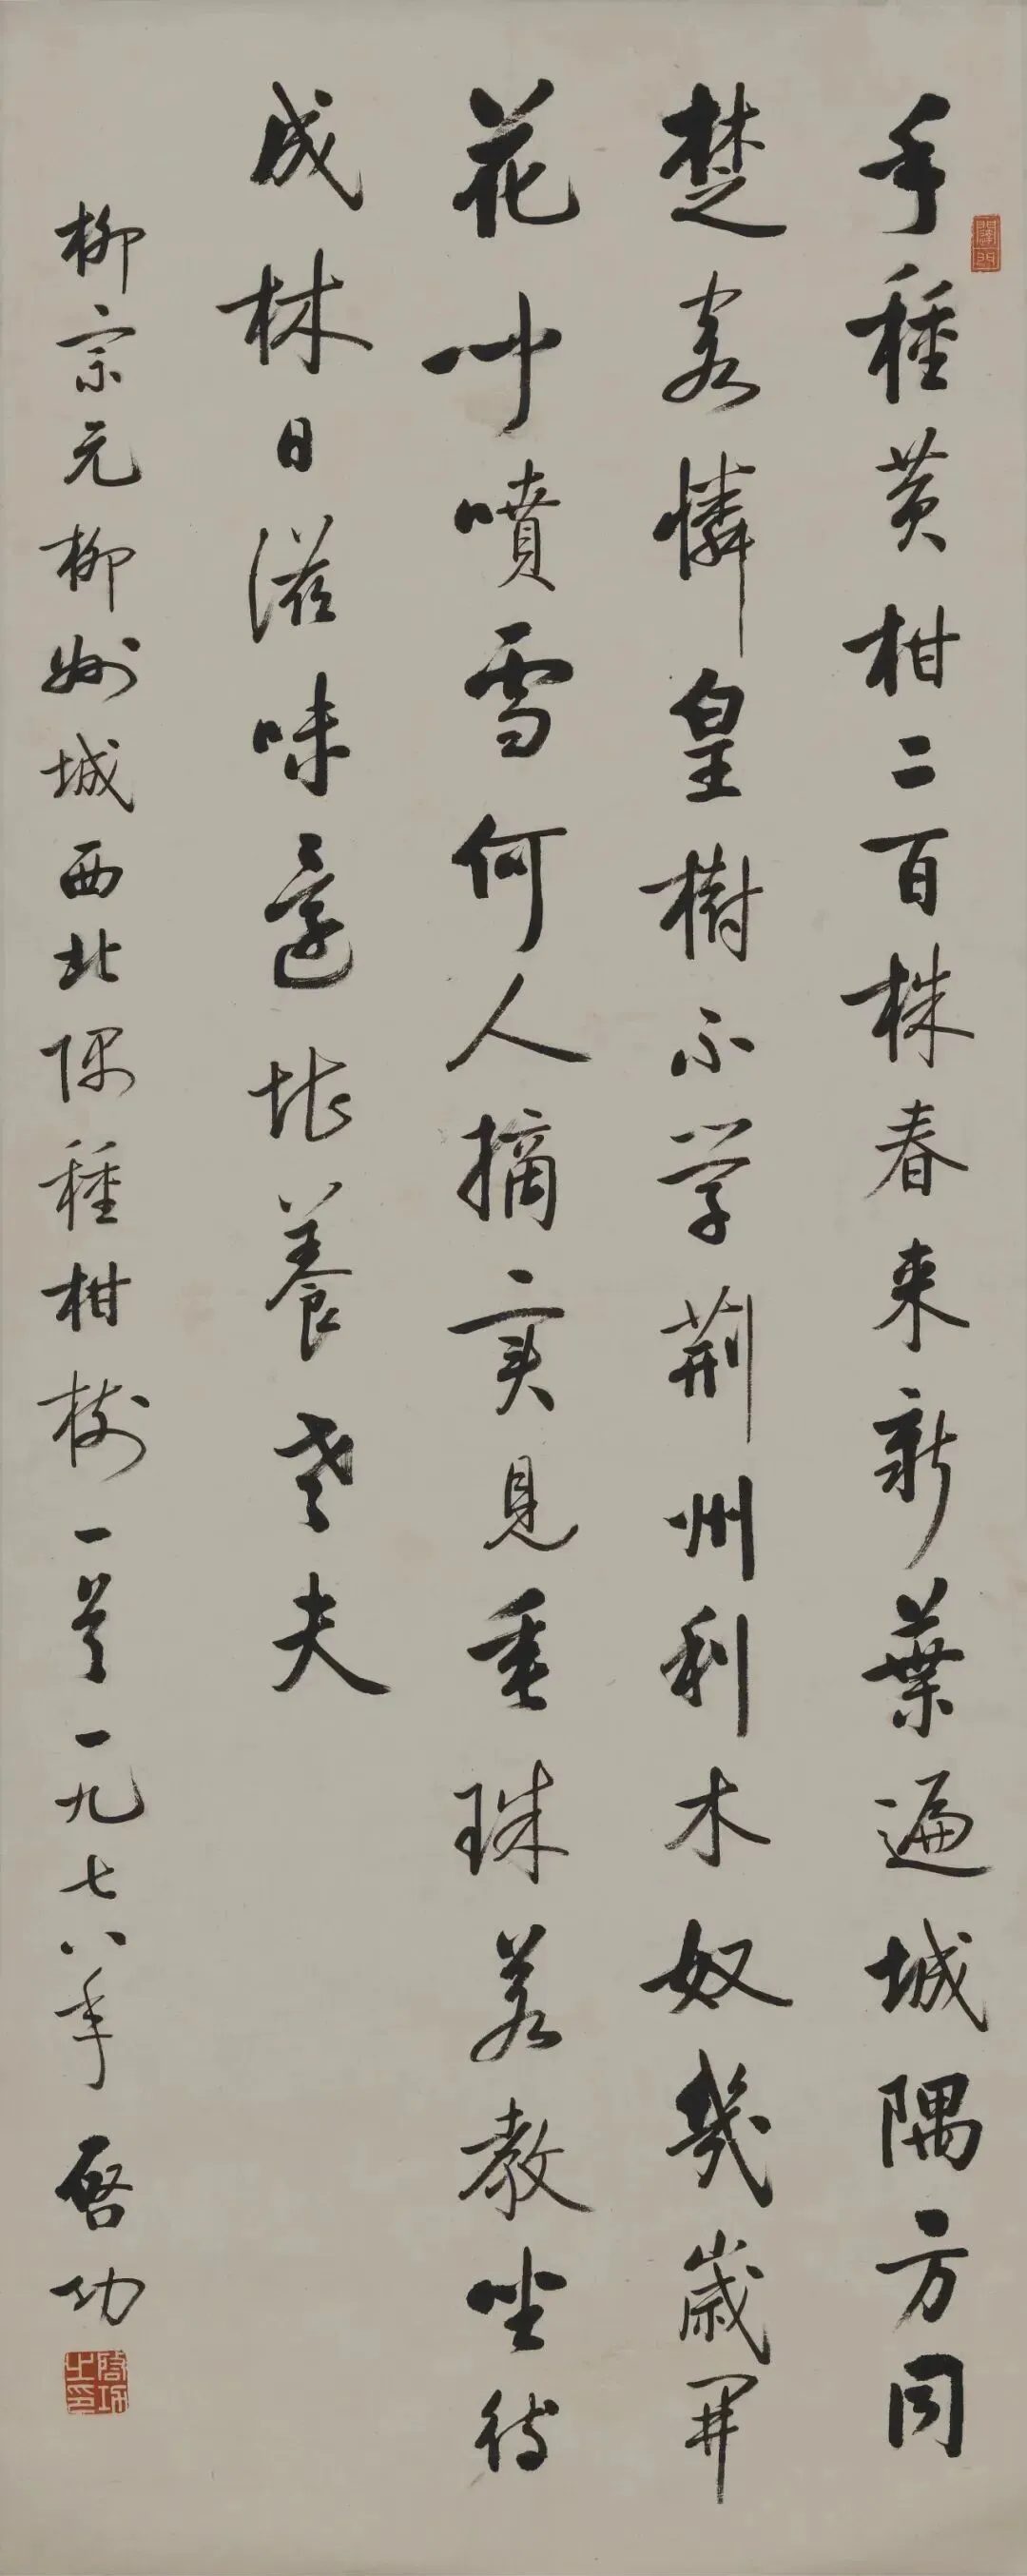 手種黄柑二百株春来新葉遍城隅方同
楚客憐皇樹不学荆州利木奴幾歲開
花聞噴雪何人摘实見垂珠若教坐待
成林日滋味還堪養老夫
柳宗元柳州城西北隅種柑樹一首一九七八年 啓功
啓功之印